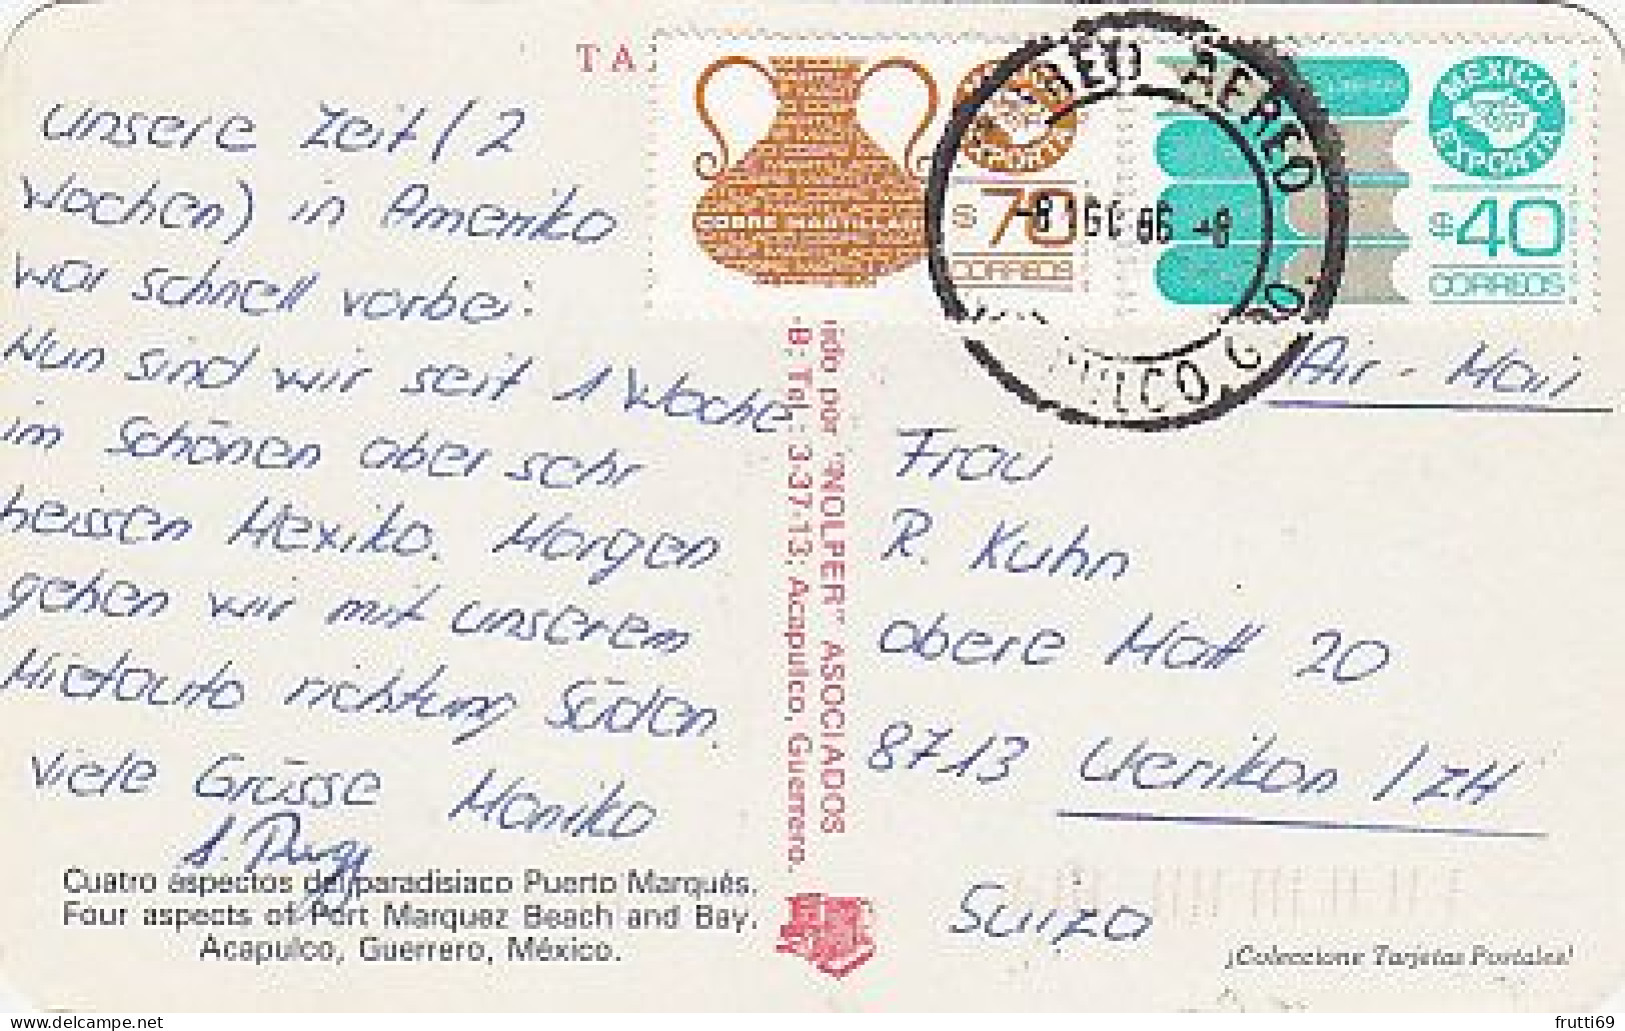 unsere Zeit (2
Wochen) in Amerika
war schnell vorbei.
Nun sind wir seit 1 Woche
im schönen aber sehr
heissen Mexiko. Morgen
gehen wir mit unserem
Mietauto richtung Süden.
Viele Grüsse Monika
Cuatro aspectos del paradisiaco Puerto Marqués.
Four aspects of Port Marquez Beach and Bay.
Acapulco, Guerrero, México.
TA
ido por "NOLPER" ASOCIADOS
B; Tel.: 3-37-13; Acapulco, Guerrero.
COBRE MARTILLADO
$ 70
CORREOS
MEXICO EXPORTA
$ 40
CORREOS
CORREO AEREO
-8 AGO 86 -8
ACAPULCO, GRO.
Air-Mail
Frau
R. Kuhn
obere Matt 20
8713 Uerikon / ZH
Suiza
¡Coleccione Tarjetas Postales!
frutti69